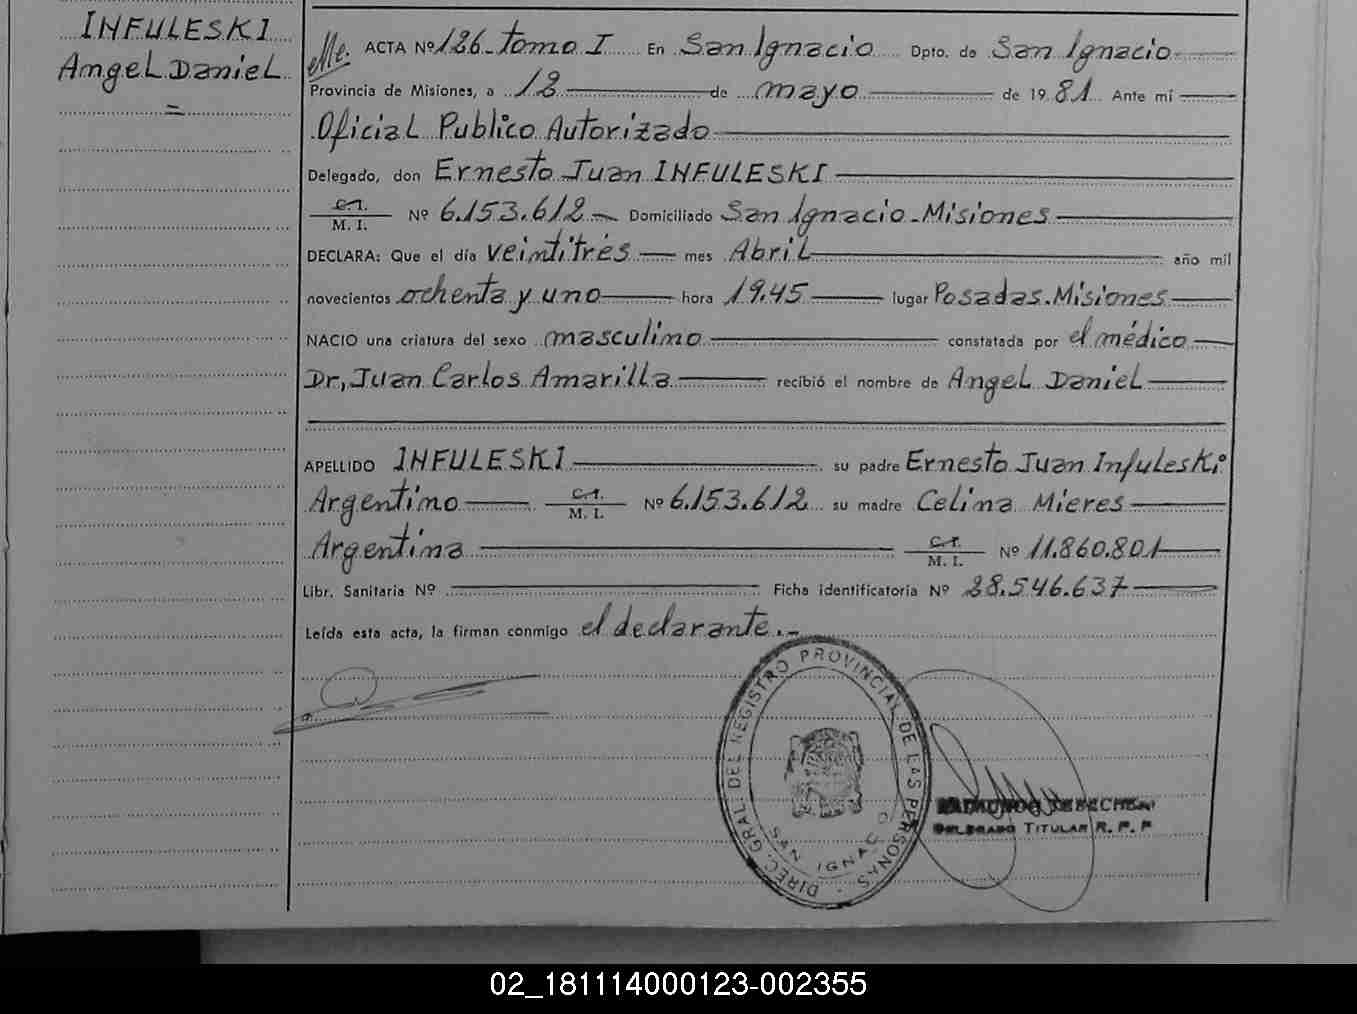 INFULESKI
Angel Daniel
=
ACTA Nº 126 - tomo I En San Ignacio Dpto. de San Ignacio
Provincia de Misiones, a 12 de mayo de 1981 Ante mí
Oficial Publico Autorizado
Delegado, don Ernesto Juan INFULESKI
C.I.
M. I. Nº 6.153.612 Domiciliado San Ignacio - Misiones
DECLARA: Que el día veintitrés mes Abril año mil
novecientos ochenta y uno hora 19.45 lugar Posadas. Misiones
NACIO una criatura del sexo masculino constatada por el médico
Dr, Juan Carlos Amarilla recibió el nombre de Angel Daniel
APELLIDO INFULESKI su padre Ernesto Juan Infuleski
Argentino C.I.
M. I. Nº 6.153.612 su madre Celina Mieres
Argentina C.I.
M. I. Nº 11.860.801
Libr. Sanitaria Nº Ficha identificatoria Nº 28.546.637
Leída esta acta, la firman conmigo el declarante.-
DIREC. GRAL. DEL REGISTRO PROVINCIAL DE LAS PERSONAS
SAN IGNACIO
DELEGADO TITULAR R. P. P.
02_181114000123-002355